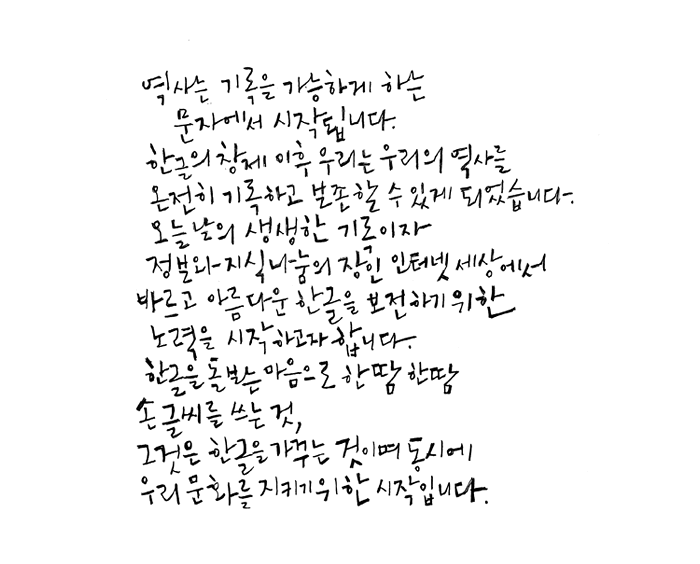 역사는 기록을 가능하게 하는
문자에서 시작됩니다.
한글의 창제 이후 우리는 우리의 역사를
온전히 기록하고 보존할 수 있게 되었습니다.
오늘날의 생생한 기록이자
정보와 지식 나눔의 장인 인터넷 세상에서
바르고 아름다운 한글을 보전하기 위한
노력을 시작하고자 합니다.
한글을 돌보는 마음으로 한땀 한땀
손글씨를 쓰는 것,
그것은 한글을 가꾸는 것이며 동시에
우리 문화를 지키기 위한 시작입니다.